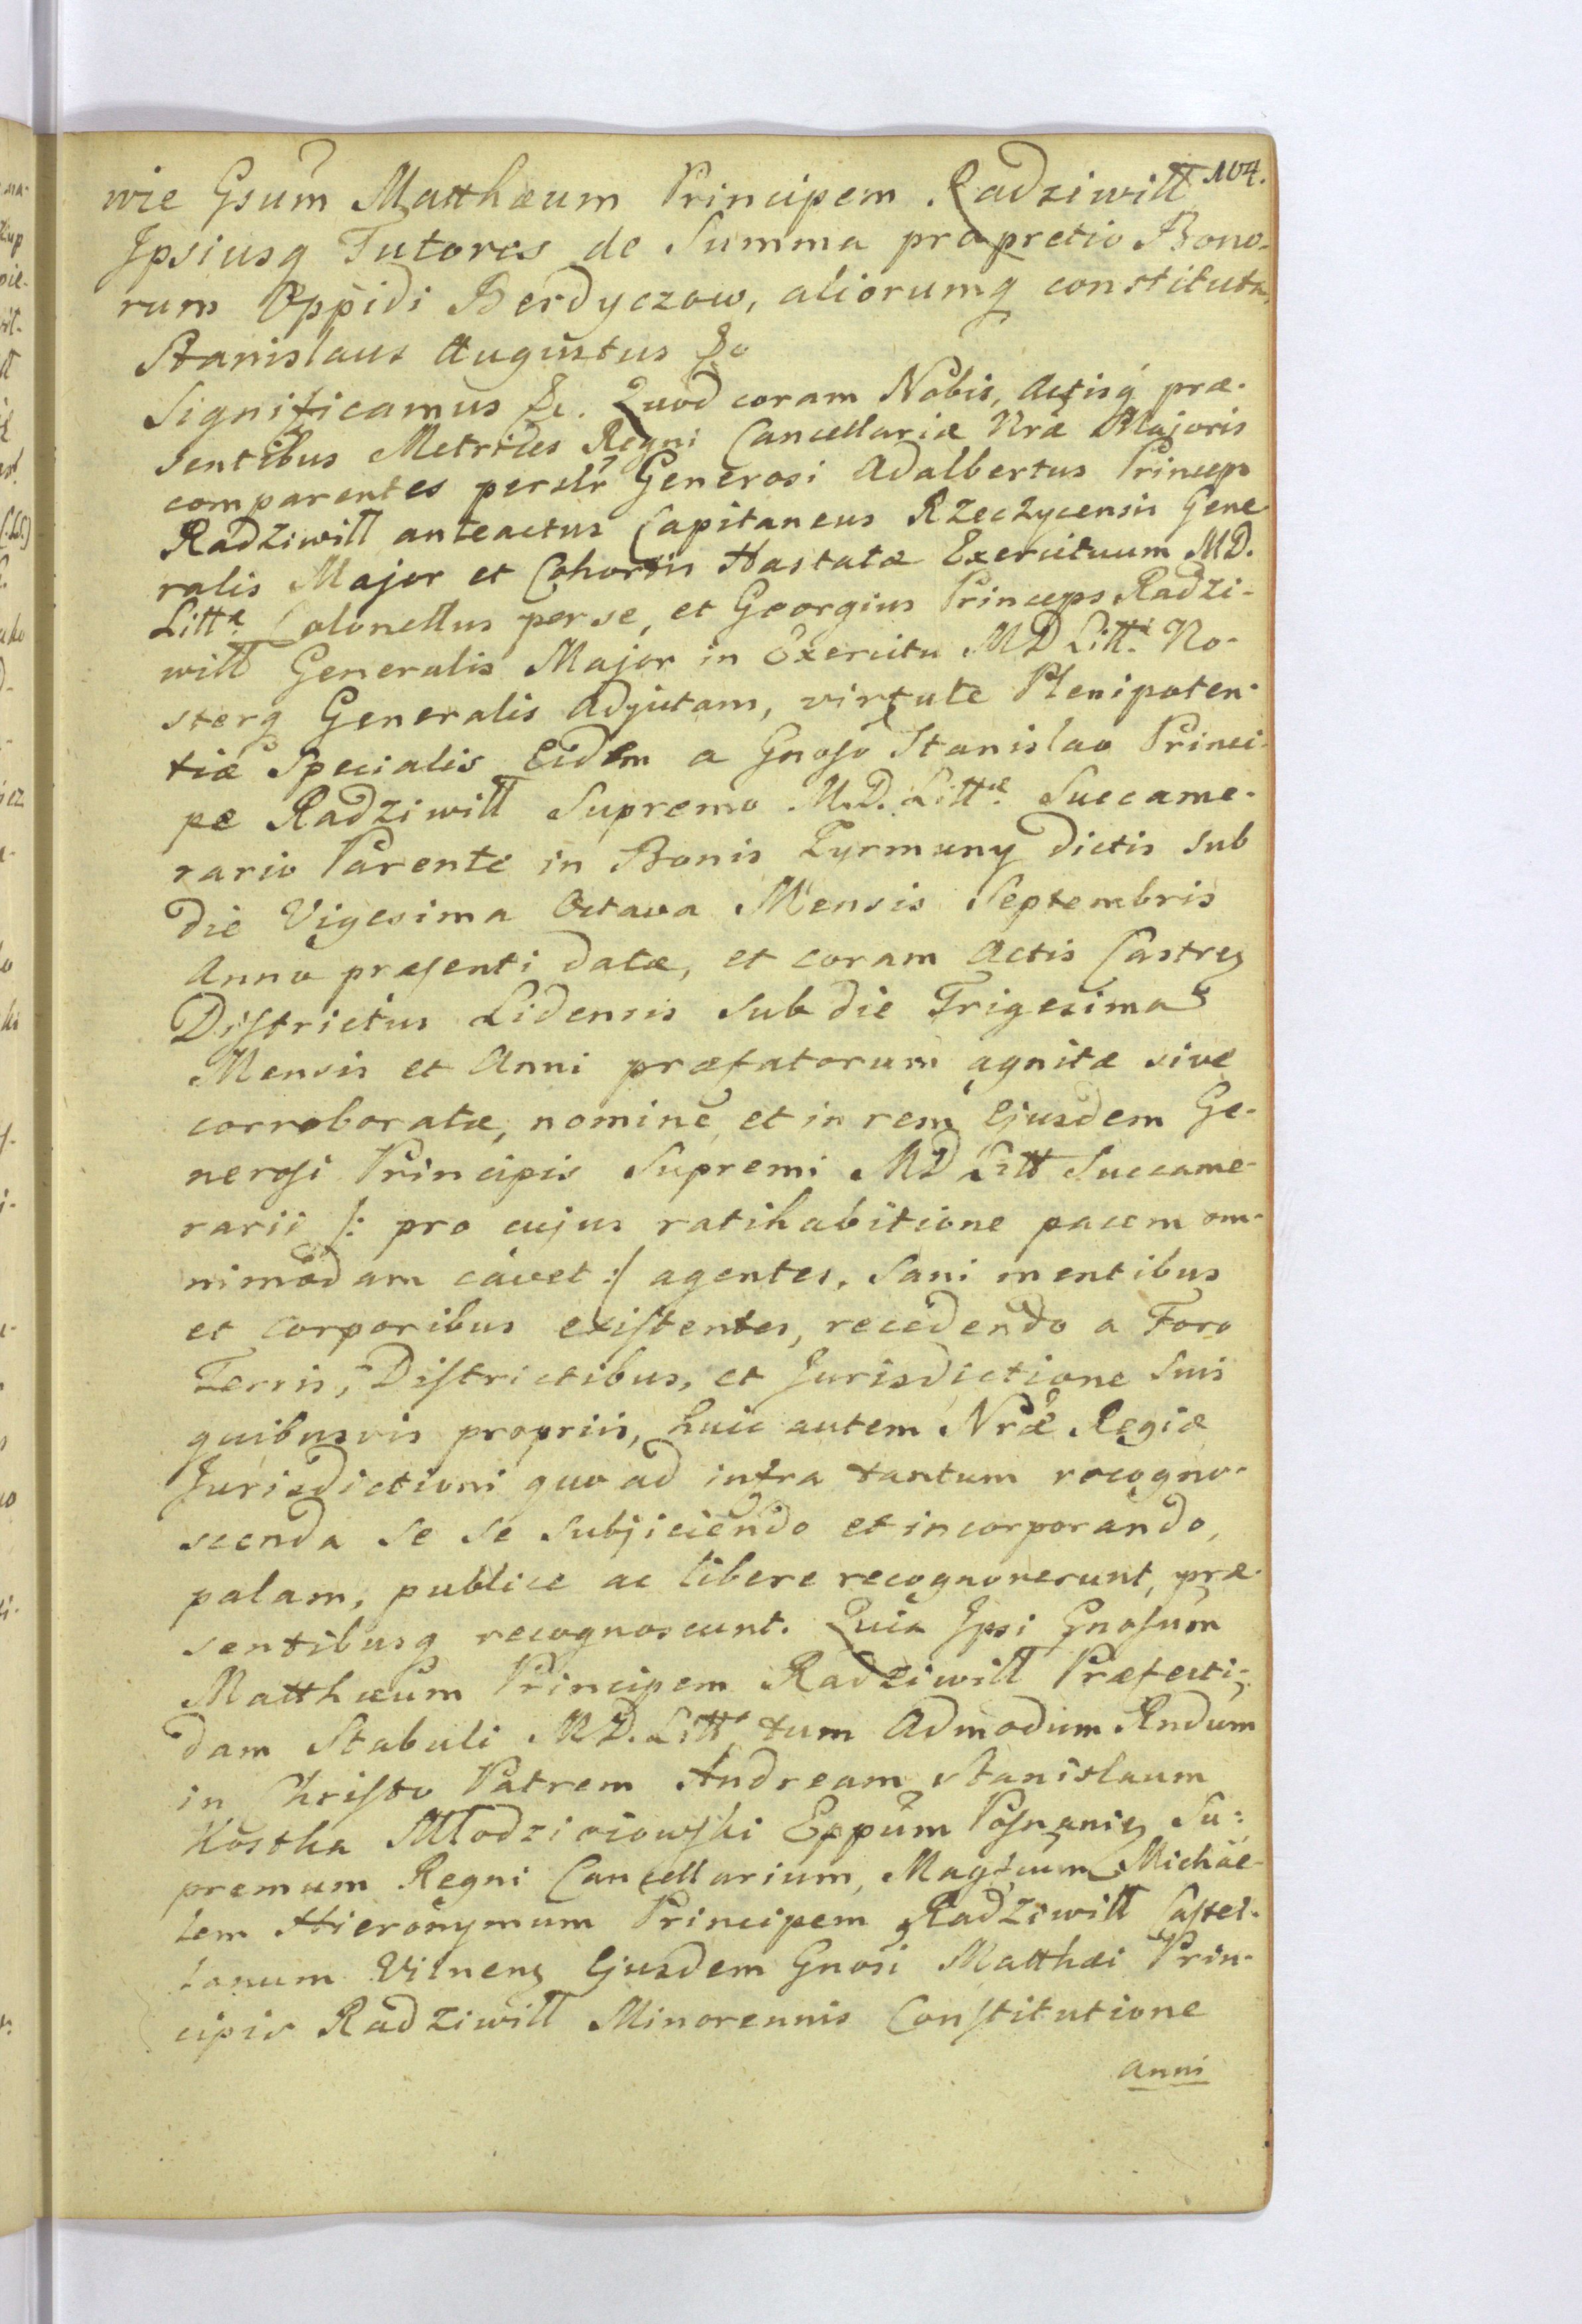 104.
wie Gsum Matthæum Principem Radziwill
Ipsiusq Tutores de Summa pro pretio Bono-
rum Oppidi Berdyczow, aliorumq constituta,
Stanislaus Augustus &c
Significamus &c. Quod coram Nobis, Actisq præ-
sentibus Metrices Regni Cancellariæ Nræ Majoris
comparentes persłr Generosi Adalbertus Princeps
Radziwill anteactus Capitaneus Rzeczycensis Gene
ralis Major et Cohortis Hastatæ Exercituum M.D.
Littæ Colonellus per se, et Georgius Princeps Radzi-
will Generalis Major in Exercitu M D Litt. No-
sterq Generalis Adjutam, virtute Plenipoten-
tiæ Specialis Eidem a Gnoso Stanislao Princi-
pe Radziwill Supremo M.D. Littæ Succame-
rario Parente in Bonis Zyrmuny dictis sub
die Vigesima Octava Mensis Septembris
Anno præsenti datæ, et coram Actis Castreq
Districtus Lidensis sub die Trigesima
Mensis et Anni præfatorum agnitæ sive
corroboratæ, nomine et in rem Ejusdem Ge-
nerosi Principis Supremi M D Litt Succame-
rarii /: pro cujus ratihabitione pacem om-
nimodam cavet :/ agentes, Sani mentibus
et corporibus existentes, recedendo a Foro
Terris, Districtibus, et Jurisdictione Suis
quibusvis propriis, huic autem Nræ Regiæ
Jurisdictioni quo ad infra tantum recogno-
scenda se se subjiciendo et incorporando,
palam, publice ac libere recognoverunt, præ-
sentibusq recognoscunt. Quia Ipsi Gnosum
Matthæum Principem Radziwill Præfecti-
dam Stabuli M D. Litt. tum Admodum Rndum
in Christo Patrem Andream Stanislaum
Kostka Młodzieiowski Eppum Posnanieq Su-
premum Regni Cancellarium, Magficum Michae-
lem Hieronymum Principem Radziwill Castel-
lanum Vilneng Ejusdem Gnosi Matthæi Prin-
cipis Radziwill Minorennis Constitutione
anni